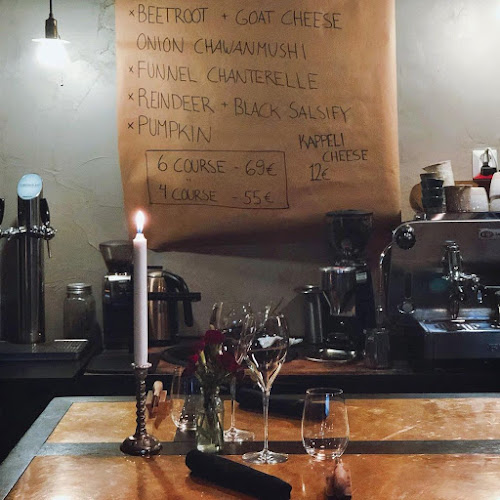 × BEETROOT + GOAT CHEESE
ONION CHAWANMUSHI
× FUNNEL CHANTERELLE
× REINDEER + BLACK SALSIFY
× PUMPKIN
KAPPELI
CHEESE
12€
6 COURSE - 69€
4 COURSE - 55€